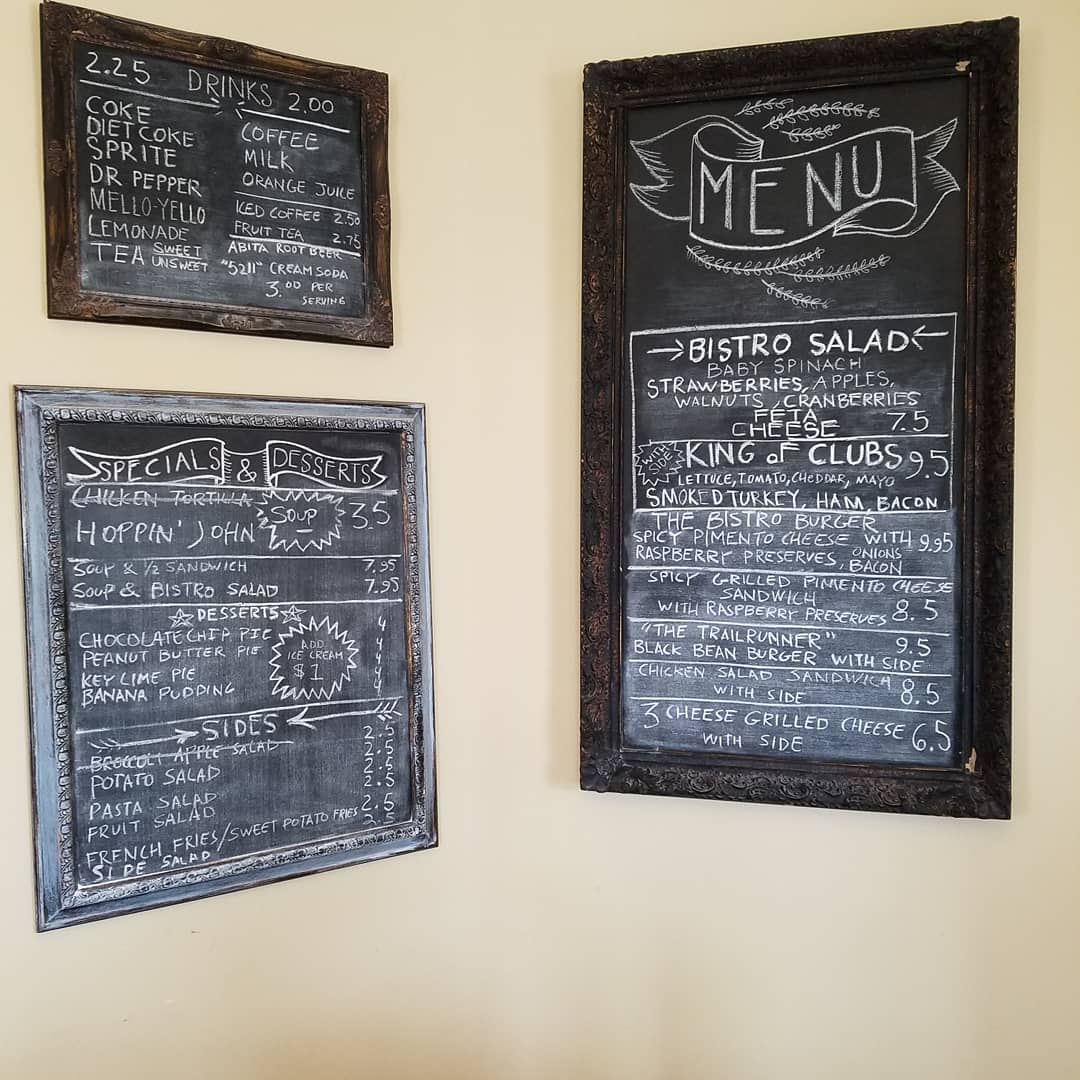 2.25 DRINKS 2.00
COKE
DIET COKE
SPRITE
DR PEPPER
MELLO-YELLO
LEMONADE
TEA SWEET
UNSWEET
COFFEE
MILK
ORANGE JUICE
ICED COFFEE 2.50
FRUIT TEA 2.75
ABITA ROOT BEER
"5211" CREAM SODA
3.00 PER
SERVING
SPECIALS & DESSERTS
CHICKEN TORTILLA
HOPPIN' JOHN SOUP 3.5
SOUP & 1/2 SANDWICH 7.95
SOUP & BISTRO SALAD 7.95
DESSERTS
CHOCOLATE CHIP PIE 4
PEANUT BUTTER PIE 4
KEY LIME PIE 4
BANANA PUDDING 4
ADD
ICE CREAM
$1
SIDES
BROCCOLI APPLE SALAD 2.5
POTATO SALAD 2.5
PASTA SALAD 2.5
FRUIT SALAD 2.5
FRENCH FRIES/SWEET POTATO FRIES 2.5
SIDE SALAD 2.5
MENU
BISTRO SALAD
BABY SPINACH
STRAWBERRIES, APPLES,
WALNUTS, CRANBERRIES
FETA
CHEESE 7.5
WITH
SIDE
KING OF CLUBS 9.5
LETTUCE, TOMATO, CHEDDAR, MAYO
SMOKED TURKEY, HAM, BACON
THE BISTRO BURGER
SPICY PIMENTO CHEESE WITH 9.95
RASPBERRY PRESERVES, ONIONS
BACON
SPICY GRILLED PIMENTO CHEESE
SANDWICH
WITH RASPBERRY PRESERVES 8.5
"THE TRAILRUNNER" 9.5
BLACK BEAN BURGER WITH SIDE
CHICKEN SALAD SANDWICH
WITH SIDE 8.5
3 CHEESE GRILLED CHEESE 6.5
WITH SIDE